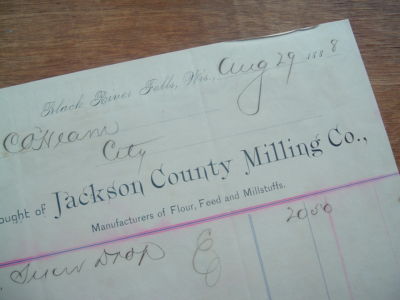 Black River Falls, Wis., Aug 29 1888
C O Hearn
City
ought of Jackson County Milling Co.,
Manufacturers of Flour, Feed and Millstuffs.
Snow Drop E 20 50